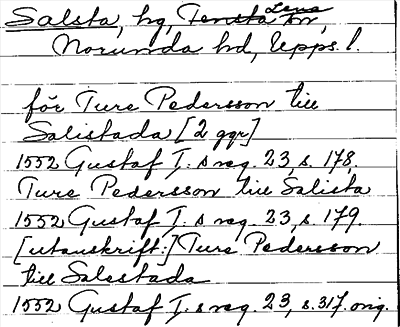 Salsta, hg, Tensta Lena sn,
Norunda hd, Upps. l.
för Ture Pedersson till
Salistada [2 ggr]
1552 Gustaf I. s reg. 23, s. 178.
Ture Pedersson till Salista
1552 Gustaf I. s reg. 23, s. 179.
[utanskrift:] Ture Pedersson
till Salestada
1552 Gustaf I. s reg. 23, s. 317. orig.